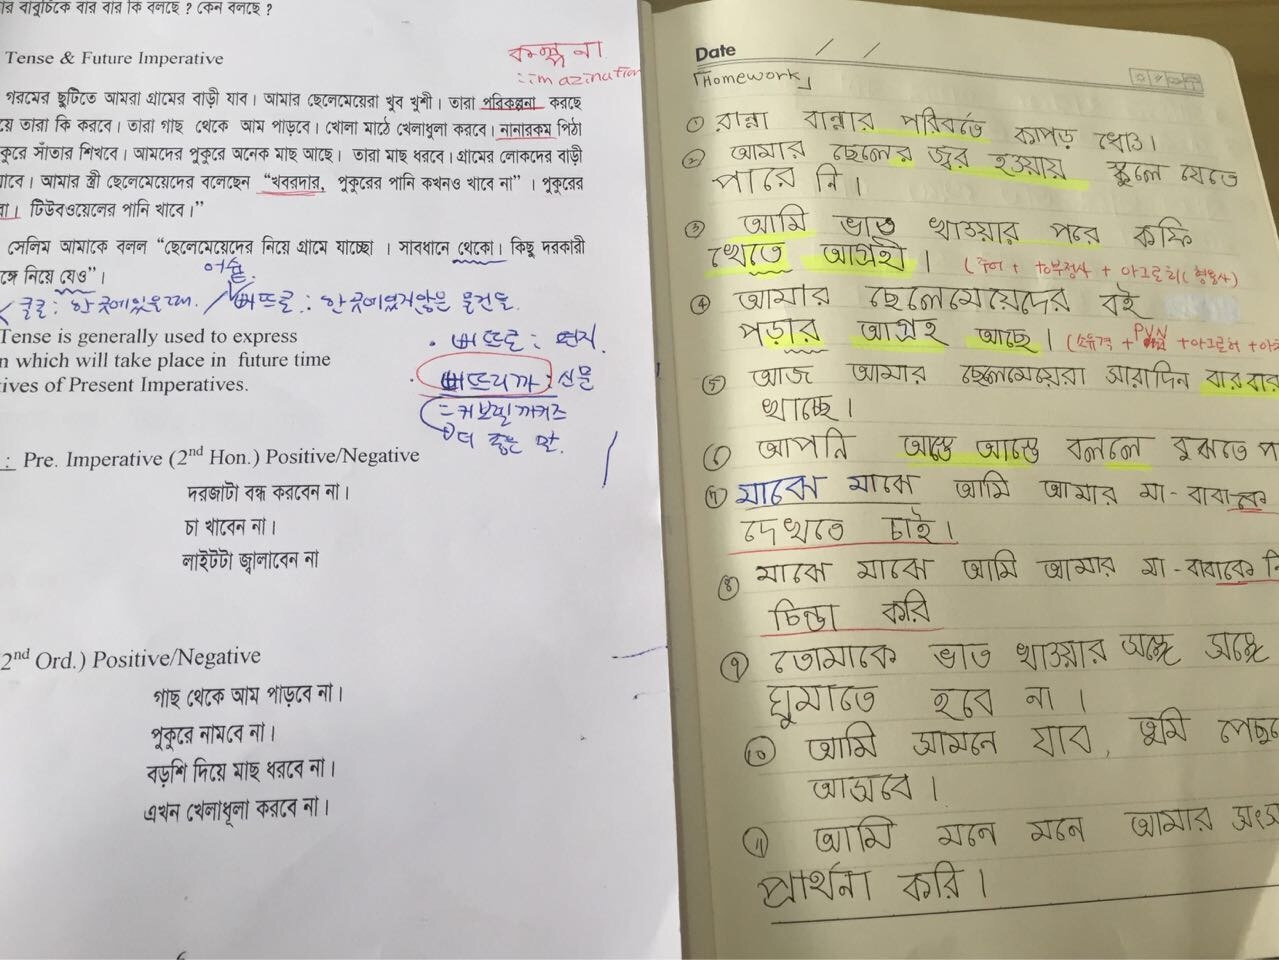 বার বার কি বলছে ? কেন বলছে ?
Tense & Future Imperative
: imazination
গরমের ছুটিতে আমরা গ্রামের বাড়ী যাব। আমার ছেলেমেয়েরা খুব খুশী। তারা পরিকল্পনা করছে
য়ে তারা কি করবে। তারা গাছ থেকে আম পাড়বে। খোলা মাঠে খেলাধুলা করবে। নানারকম পিঠা
কুরে সাঁতার শিখবে। আমদের পুকুরে অনেক মাছ আছে। তারা মাছ ধরবে। গ্রামের লোকদের বাড়ী
যাবে। আমার স্ত্রী ছেলেমেয়েদের বলেছেন "খবরদার, পুকুরের পানি কখনও খাবে না"। পুকুরের
না। টিউবওয়েলের পানি খাবে।"
সেলিম আমাকে বলল "ছেলেমেয়েদের নিয়ে গ্রামে যাচ্ছো। সাবধানে থেকো। কিছু দরকারী
ঙ্গে নিয়ে যেও"।
Tense is generally used to express
n which will take place in future time
tives of Present Imperatives.
. 버뜨로 : 편지.
. 버뜨리까 : 신문
더 좋은 말.
: Pre. Imperative (2nd Hon.) Positive/Negative
দরজাটা বন্ধ করবেন না।
চা খাবেন না।
লাইটটা জ্বালাবেন না
2nd Ord.) Positive/Negative
গাছ থেকে আম পাড়বে না।
পুকুরে নামবে না।
বড়শি দিয়ে মাছ ধরবে না।
এখন খেলাধূলা করবে না।
6
Date / /
「Homework」
① রান্না বান্নার পরিবর্তে কাপড় ধোও।
② আমার ছেলের জ্বর হওয়ায় স্কুলে যেতে
পারে নি।
③ আমি ভাত খাওয়ার পরে কফি
খেতে আগ্রহী। (주어 + to부정사 + 아그로히(형용사)
④ আমার ছেলেমেয়েদের বই
পড়ার আগ্রহ আছে। (소유격 + PVN + 아그로허 +
⑤ আজ আমার ছেলেমেয়েরা সারাদিন বারবার
খাচ্ছে।
⑥ আপনি আস্তে আস্তে বললে বুঝতে প
⑦ মাঝে মাঝে আমি আমার মা-বাবাকে
দেখতে চাই।
⑧ মাঝে মাঝে আমি আমার মা-বাবাকে নি
চিন্তা করি
⑨ তোমাকে ভাত খাওয়ার সঙ্গে সঙ্গে
ঘুমাতে হবে না।
⑩ আমি সামনে যাব, তুমি পেছনে
আসবে।
⑪ আমি মনে মনে আমার সংস
প্রার্থনা করি।